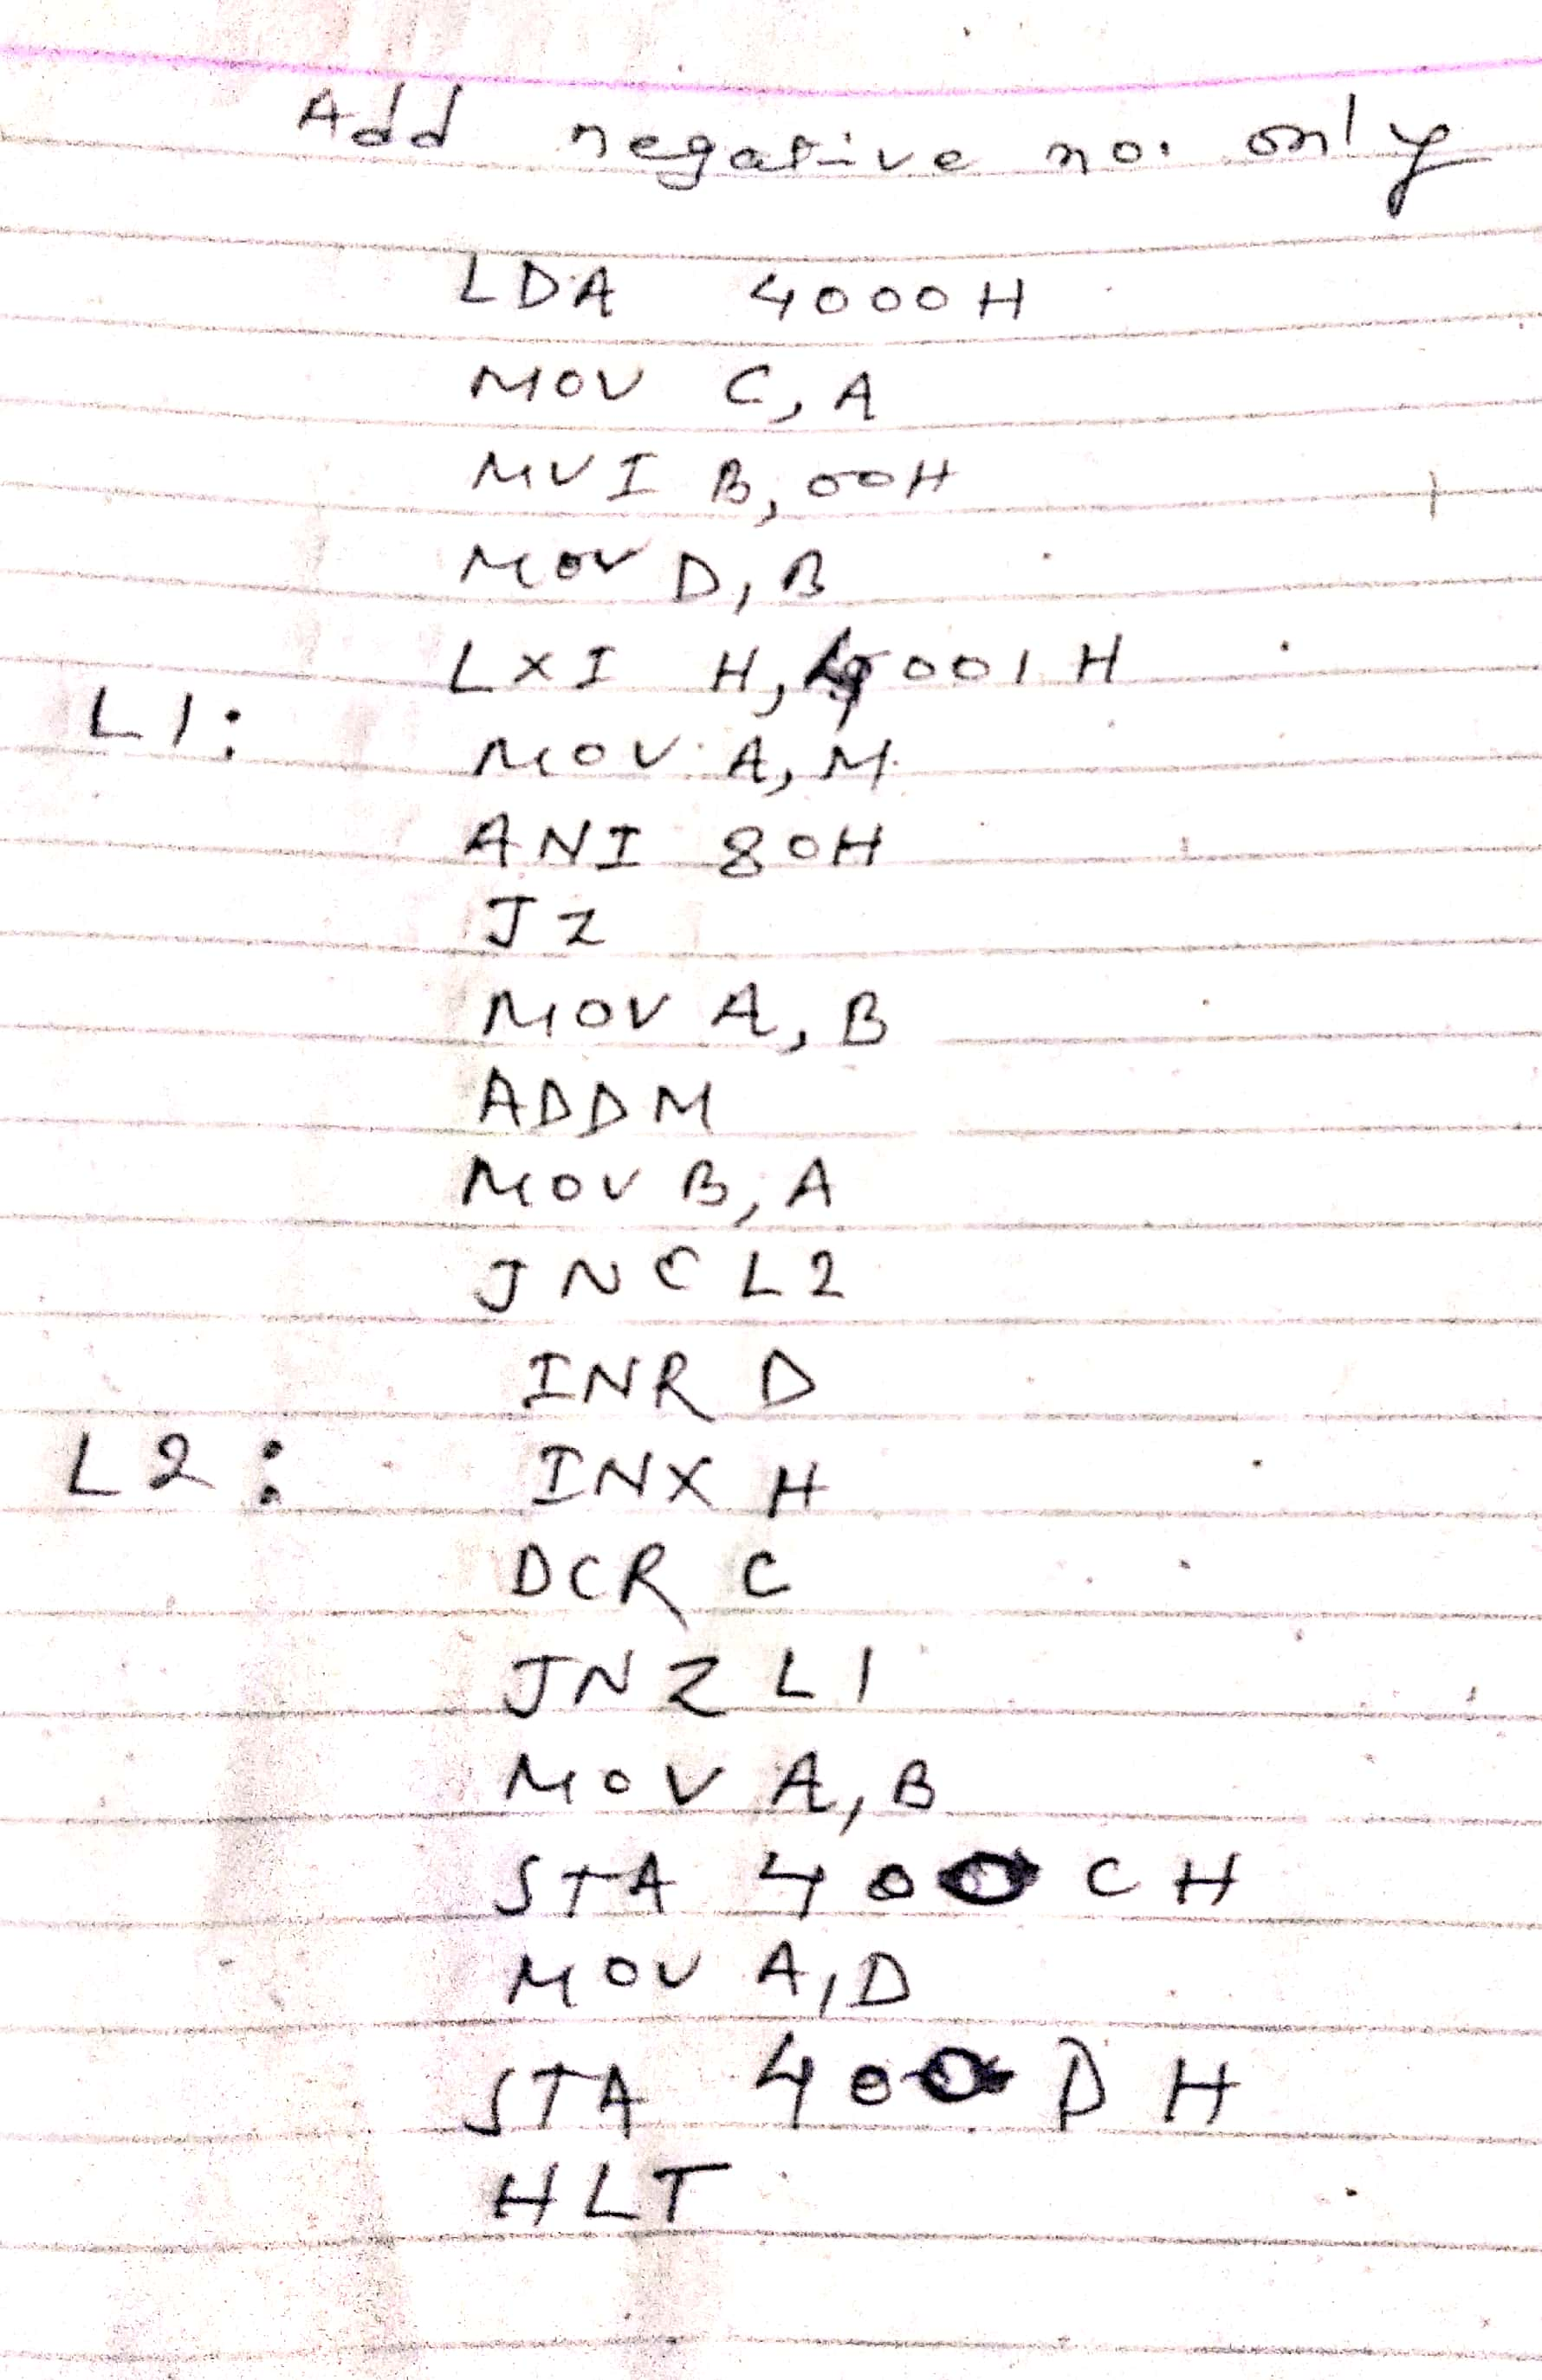 Add negative no. only
LDA 4000H
MOV C, A
MVI B, 00H
MOV D, B
LXI H, 4001H
L1: MOV A, M
ANI 80H
JZ
MOV A, B
ADD M
MOV B, A
JNC L2
INR D
L2: INX H
DCR C
JNZ L1
MOV A, B
STA 400CH
MOV A, D
STA 400DH
HLT